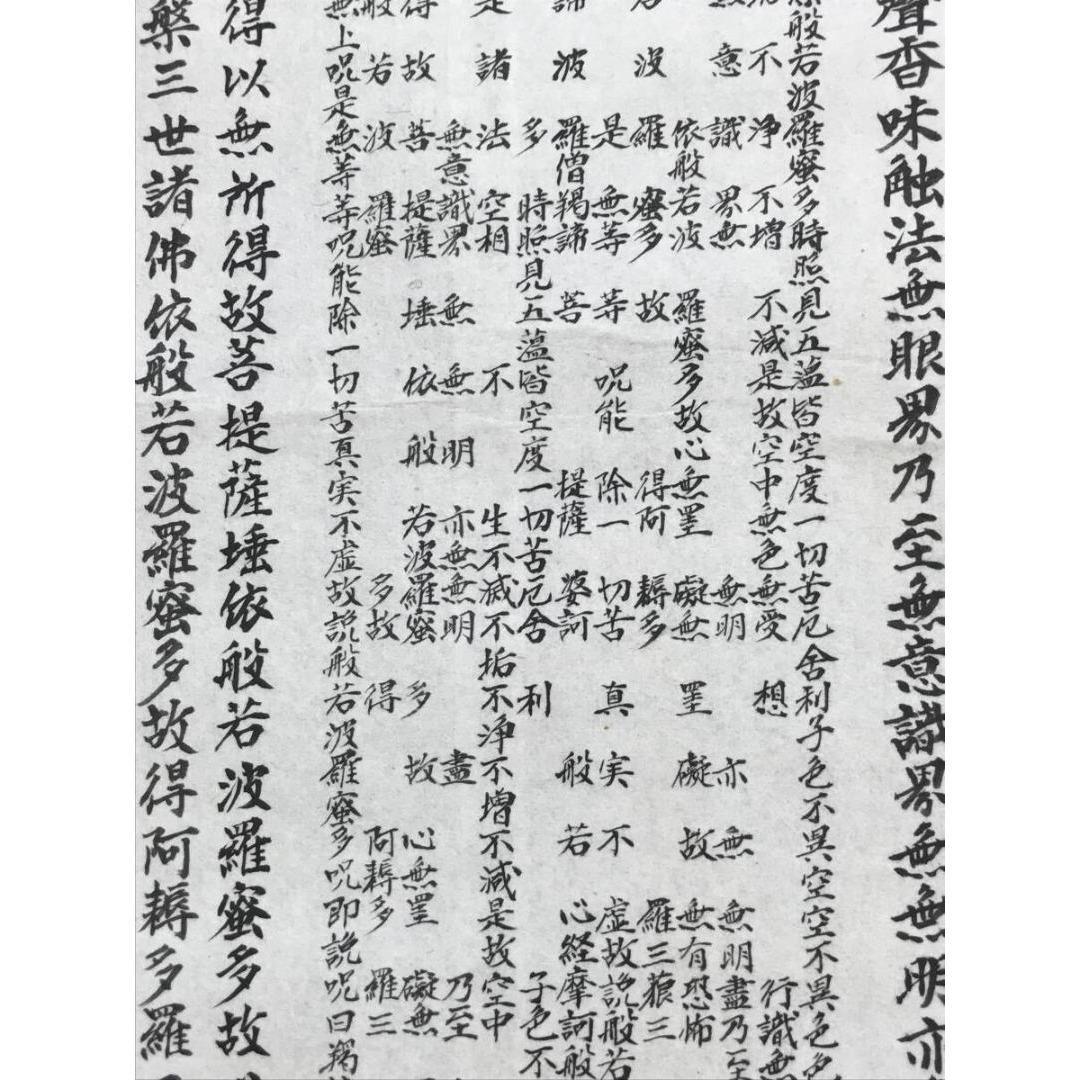 聲香味触法無眼界乃至無意識界無無明亦
般若波羅蜜多時照見五蘊皆空度一切苦厄舍利子色不異空空不異色色
不浄不增不減是故空中無色無受想行識無
意識界無無明亦無無明盡乃至
依般若波羅蜜多故心無罣礙無罣礙故無有恐怖
若波羅蜜多故得阿耨多羅三藐三
是無等等呪能除一切苦真実不虚故説般若
諦波羅僧羯諦菩提薩婆訶般若心経摩訶般
多時照見五蘊皆空度一切苦厄舍利子色不
是諸法空相不生不滅不垢不浄不增不減是故空中
無意識界無無明亦無無明盡乃至
得故菩提薩埵依般若波羅蜜多故心無罣礙無
般若波羅蜜多故得阿耨多羅三
無上呪是無等等呪能除一切苦真実不虚故説般若波羅蜜多呪即説呪曰羯
得以無所得故菩提薩埵依般若波羅蜜多故
槃三世諸佛依般若波羅蜜多故得阿耨多羅